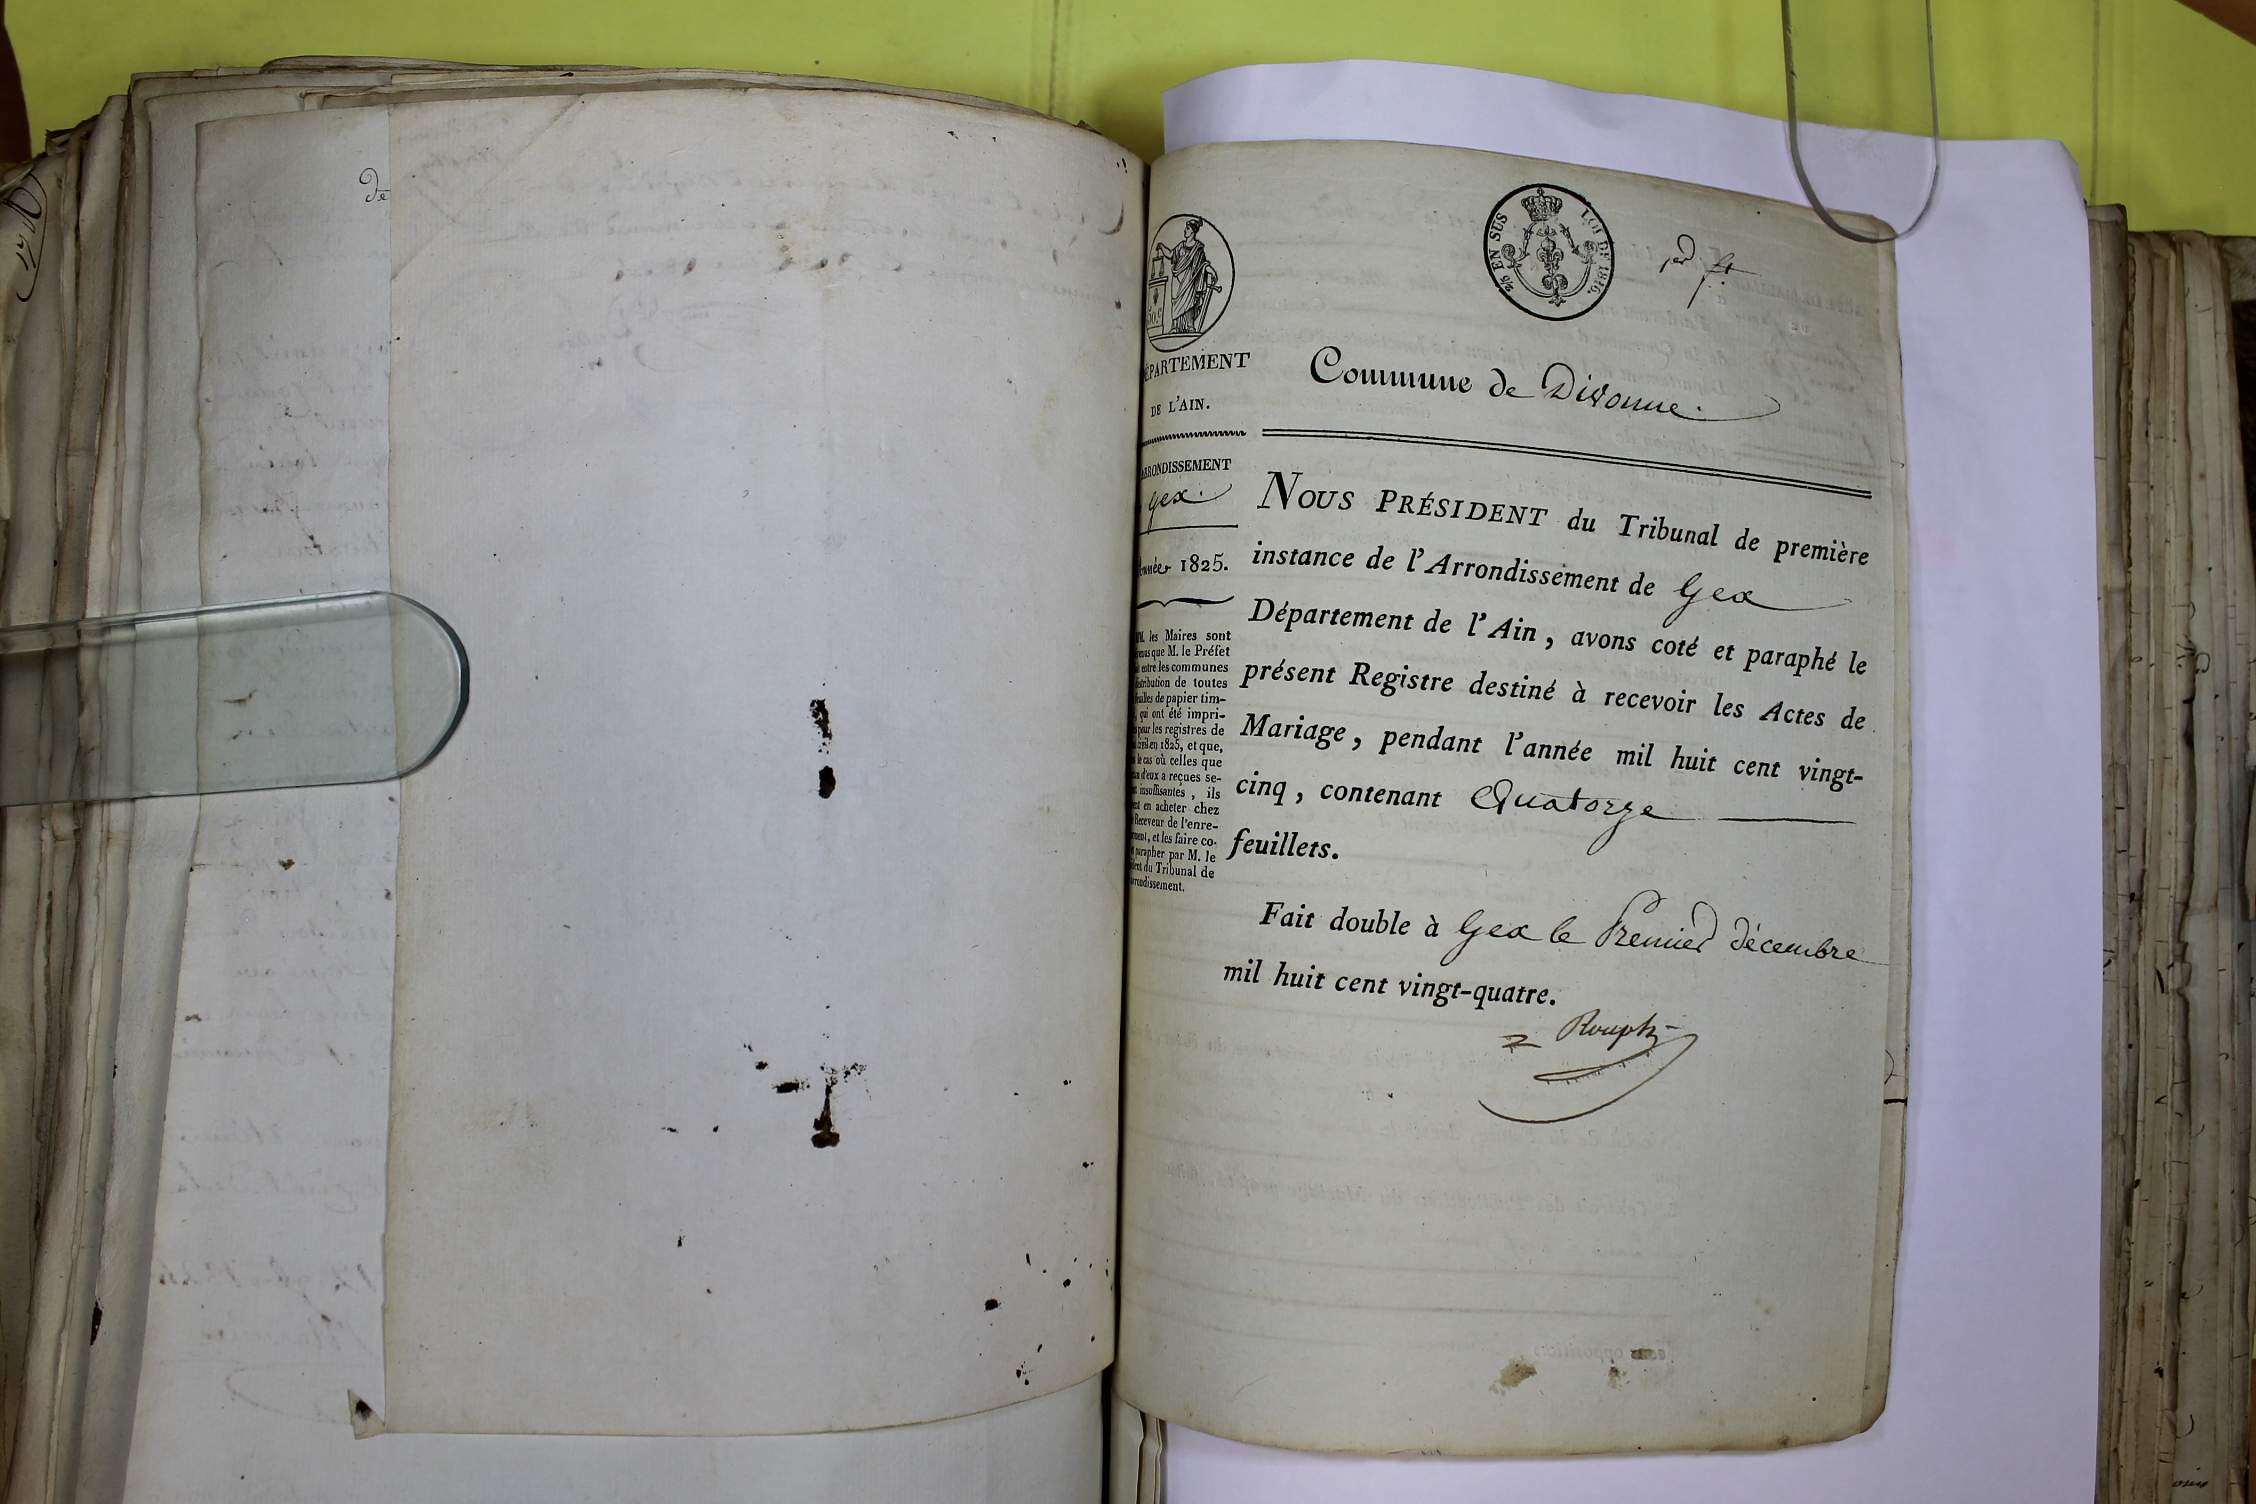 de
2/5 EN SUS
LOI DE 1816.
50 c
1er ft
DÉPARTEMENT
DE L'AIN.
Commune de Divonne.
ARRONDISSEMENT
Gex.
Année 1825.
MM. les Maires sont
que M. le Préfet
entre les communes
distribution de toutes
feuilles de papier tim-
qui ont été impri-
pour les registres de
civil en 1825, et que,
le cas où celles que
d'eux a reçues se-
insuffisantes, ils
en acheter chez
Receveur de l'enre-
et les faire co-
parapher par M. le
du Tribunal de
arrondissement.
NOUS PRÉSIDENT du Tribunal de première
instance de l'Arrondissement de Gex
Département de l'Ain, avons coté et paraphé le
présent Registre destiné à recevoir les Actes de
Mariage, pendant l'année mil huit cent vingt-
cinq, contenant Quatorze
feuillets.
Fait double à Gex le Premier décembre
mil huit cent vingt-quatre.